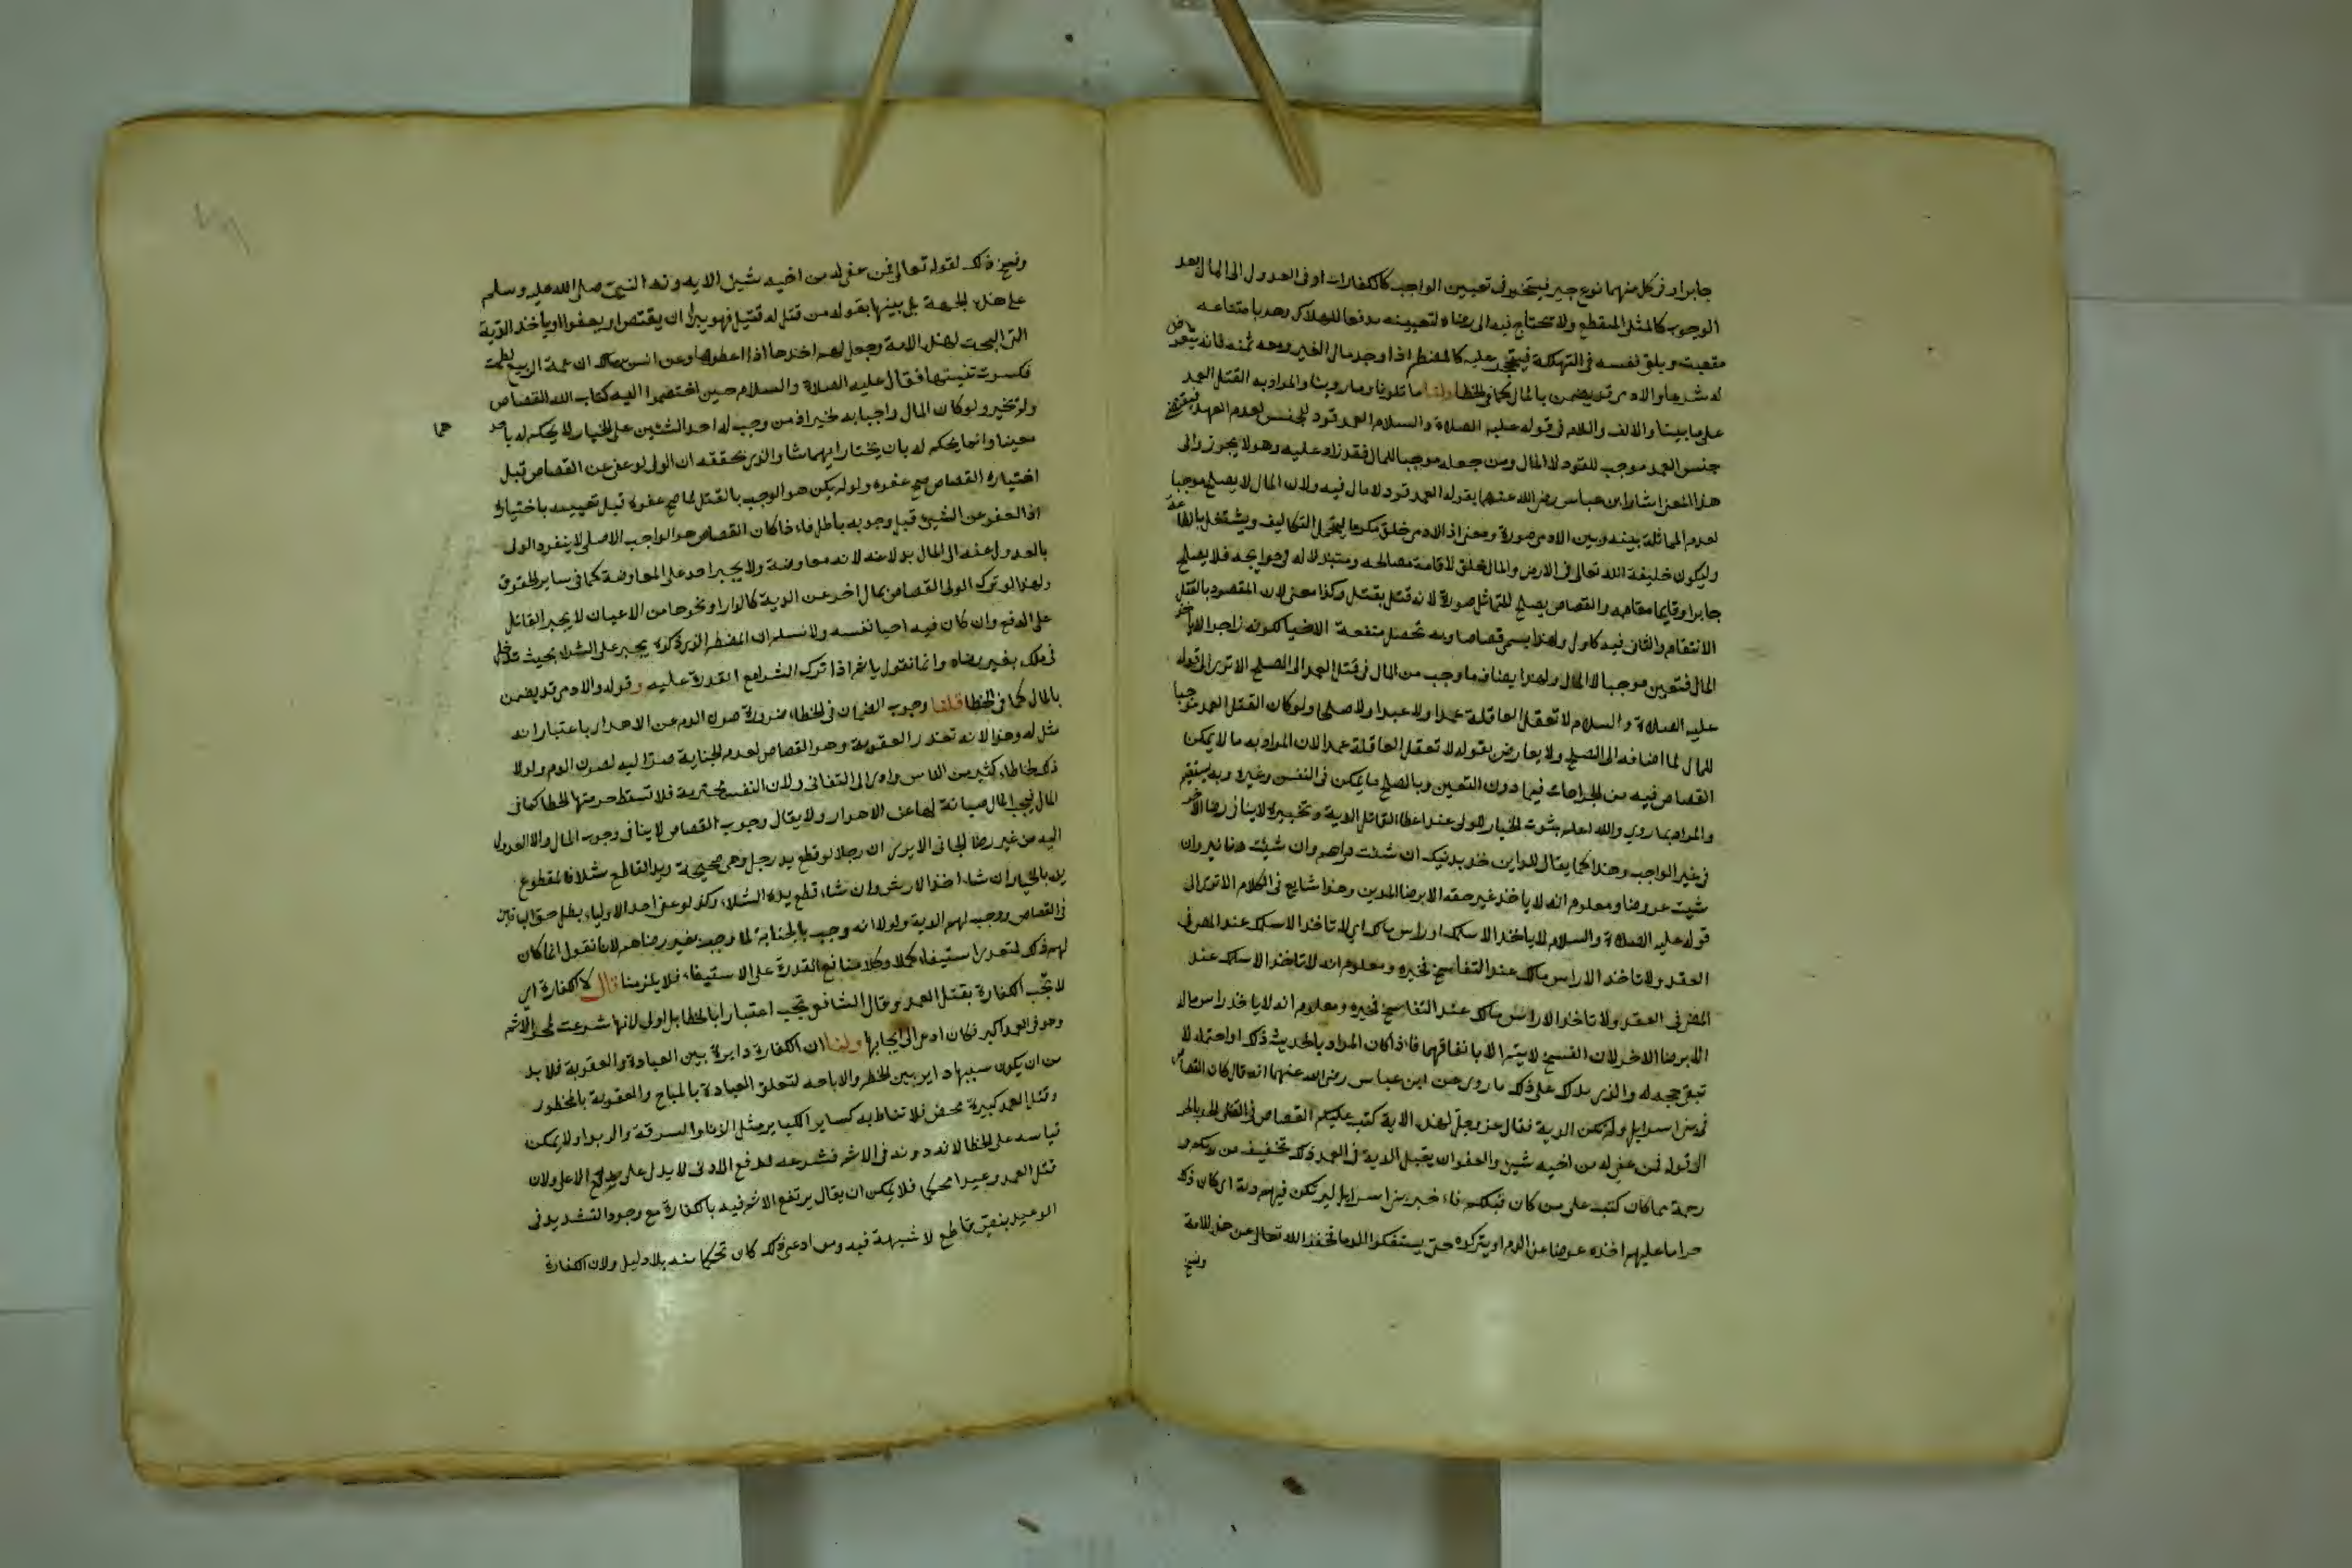 جابرا وفي كل منهما نوع جبر فيتخير في تعيين الواجب كالكفارات او في العدول الى المال بعد
الوجوب كالمثلى المنقطع ولا يحتاج فيه الى رضاه لتعيينه مدفعا للهلاك وهو بامتناعه
متعنت ويلق نفسه في التهلكة فيحجر عليه كالمضطر اذا وجد مال الغير ومعه ثمنه فانه يتعرض
له شرعا والادمى قد يضمن بالمال كما في الخطا ولنا ما تلونا وما روينا والمراد به القتل العمد
على ما بينا والالف واللام في قوله عليه الصلاة والسلام العمد قود للجنس لعدم العهد فيقتضى
جنس العمد موجب للقود لا المال ومن جعله موجبا للمال فقد زاد عليه وهو لا يجوز والى
هذا المعنى اشار ابن عباس رضى الله عنهما بقوله العمد قود لا مال فيه ولان المال لا يصلح موجبا
لعدم المماثلة بينه وبين الادمى صورة ومعنى اذ الادمى خلق مكرما ليتحمل التكاليف ويشتغل بالطاعة
وليكون خليفة الله تعالى في الارض والمال خلق لاقامة مصالحه ومبتذلا له وحوايجه فلا يصلح
جابرا وقايما مقامه والقصاص يصلح للتماثل صورة لانه قتل بقتل وكذا معنى لان المقصود بالقتل
الانتقام والثانى فيه كالاول ولهذا يسمى قصاصا وبه تحصل منفعة الاحيا لكونه زاجرا لا باخذ
المال فتعين موجبا لا المال ولهذا يضاف ما وجب من المال في قتل العمد الى الصلح الا ترى الى قوله
عليه الصلاة والسلام لا تعقل العاقلة عمدا ولا عبدا ولا صلحا ولو كان القتل العمد موجبا
للمال لما اضافه الى الصلح ولا يعارض بقوله لا تعقل العاقلة عمدا لان المراد به ما لا يمكن
القصاص فيه من الجراحات فيما دون النفس وبالصلح ما يمكن في النفس وغيره وبه يستقيم
والمراد بما روى والله اعلم بثبوت الخيار للولى عند اعطا القاتل الدية وتخييره لا ينافى رضا الاخر
في غير الواجب وهذا كما يقال للداين خذ بدينك ان شئت دراهم وان شئت دنانير وان
شيت عروضا ومعلوم انه لا ياخذ غير حقه الا برضا المدين وهذا شايع في الكلام الا ترى الى
قوله عليه الصلاة والسلام لا ياخذ الا سلمك او راس مالك اى لا تاخذ الا سلمك عند المضى في
العقد ولا تاخذ الا راس مالك عند التفاسخ فخيره ومعلوم انه لا تاخذ الا سلمك عند
المضى في العقد ولا تاخذ الا راس مالك عند التفاسخ فخيره ومعلوم انه لا ياخذ راس ماله
الا برضا الاخر لان الفسخ لا يتم الا باتفاقهما فاذا كان المراد بالحديث ذلك او احتمله لا
تبقى حجة له والذى يدلك على ذلك ما روى عن ابن عباس رضى الله عنهما انه قال كان القصاص
في بنى اسرايل ولم تكن الدية فقال عز وجل لهذه الاية كتب عليكم القصاص في القتلى الحر بالحر
الى قوله فمن عفى له من اخيه شيئ والعفو ان يقبل الدية في العمد ذلك تخفيف من ربكم و
رحمة مما كان كتب على من كان قبلكم فاخبر بنى اسرايل لم تكن فيهم دية اى كان ذلك
حراما عليهم اخذه عوضا عن الدم او يتركوه حتى يستفكوا الدما فخفف الله تعالى عن هذه الامة
ونسخ
ونسخ ذلك لقوله تعالى فمن عفى له من اخيه شيئ الاية ونبه النبى صلى الله عليه وسلم
على هذه الجهة بل بينها بقوله من قتل له قتيل فهو بين ان يقتص او يعفوا او ياخذ الدية
التى ابيحت لهذه الامة وجعل لهم اخذها اذا اعطوها وعن انس بن مالك ان عمة الربيع لطمت
فكسرت ثنيتها فقال عليه الصلاة والسلام حين اختصموا اليه كتاب الله القصاص
ولم يخير ولو كان المال واجبا به لخير اذ من وجب له احد الشئين على الخيار لا يحكم له باحد
هما
معينا وانما يحكم له بان يختار ايهما شا والذى يحققه ان الولى لو عفى عن القصاص قبل
اختياره القصاص صح عفوه ولو لم يكن هو الوجب بالقتل لما صح عفوه قبل تعيينه باختياره
اذ العفو عن الشيئ قبل وجوبه باطل فاذا كان القصاص هو الواجب الاصلى لا ينفرد الولى
بالعدول عنه الى المال بدلا عنه لانه معاوضة ولا يجبر احد على المعاوضة كما في ساير الحقوق
ولهذا لو ترك الولى القصاص بمال اخر عن الدية كالدار او نحوها من الاعيان لا يجبر القاتل
على الدفع وان كان فيه احيا نفسه ولا نسلم ان المضطر الذى ذكره يجبر على الشرا بحيث تدخل
في ملكه بغير رضاه وانما نقول ياثم اذا ترك الشرا مع القدرة عليه وقوله والادمى قد يضمن
بالمال كما في الخطا قلنا وجوب الضمان في الخطا ضرورة صون الدم عن الاهدار باعتبار انه
مثل له وهذا لانه تعذر العقوبة وهو القصاص لعدم الجناية صرنا اليه لصون الدم ولولا
ذلك لخاطا كثير من الناس وادى الى التفانى ولان النفس محترمة فلا تسقط حرمتها بالخطا كما في
المال فيجب المال صيانة لها عن الاهدار ولا يقال وجوب القصاص لا ينافى وجوب المال والا العدول
اليه من غير رضا الجانى الا يرى ان رجلا لو قطع يد رجل وهى صحيحة ويد القاطع شلا فالمقطوع
يده بالخيار ان شا اخذ الارش وان شا قطع يده الشلا وكذا لو عفى احد الاولياء بطل حق الباقين
في القصاص ووجب لهم الدية ولولا انه وجب بالجناية لما وجب بغير رضاهم لانا نقول انما كان
لهم ذلك لتعذر استيفا حقه كملا وكلامنا مع القدرة على الاستيفا فلا يلزمنا قال لا الكفارة اى
لا تجب الكفارة بقتل العمد وقال الشافعى تجب اعتبارا بالخطا بل اولى لانها شرعت لمحو الاثم
وهو في العمد اكبر فكان ادعى الى ايجابها ولنا ان الكفارة دايرة بين العبادة والعقوبة فلا بد
من ان يكون سببها دايرا بين الحظر والاباحه لتعلق العبادة بالمباح والعقوبة بالمحظور
وقتل العمد كبيرة محض فلا تناط به كساير الكباير مثل الزنا والسرقة والربوا ولا يمكن
قياسه على الخطا لانه دونه في الاثم فشرعه لدفع الادنى لا يدل على دفع الاعلى ولان
قتل العمد وعيدا محكما فلا يمكن ان يقال يرتفع الاثم فيه بالكفارة مع وجود التشديد في
الوعيد بنص قاطع لا شبهة فيه ومن ادعى ذلك كان تحكما منه بلا دليل ولان الكفارة